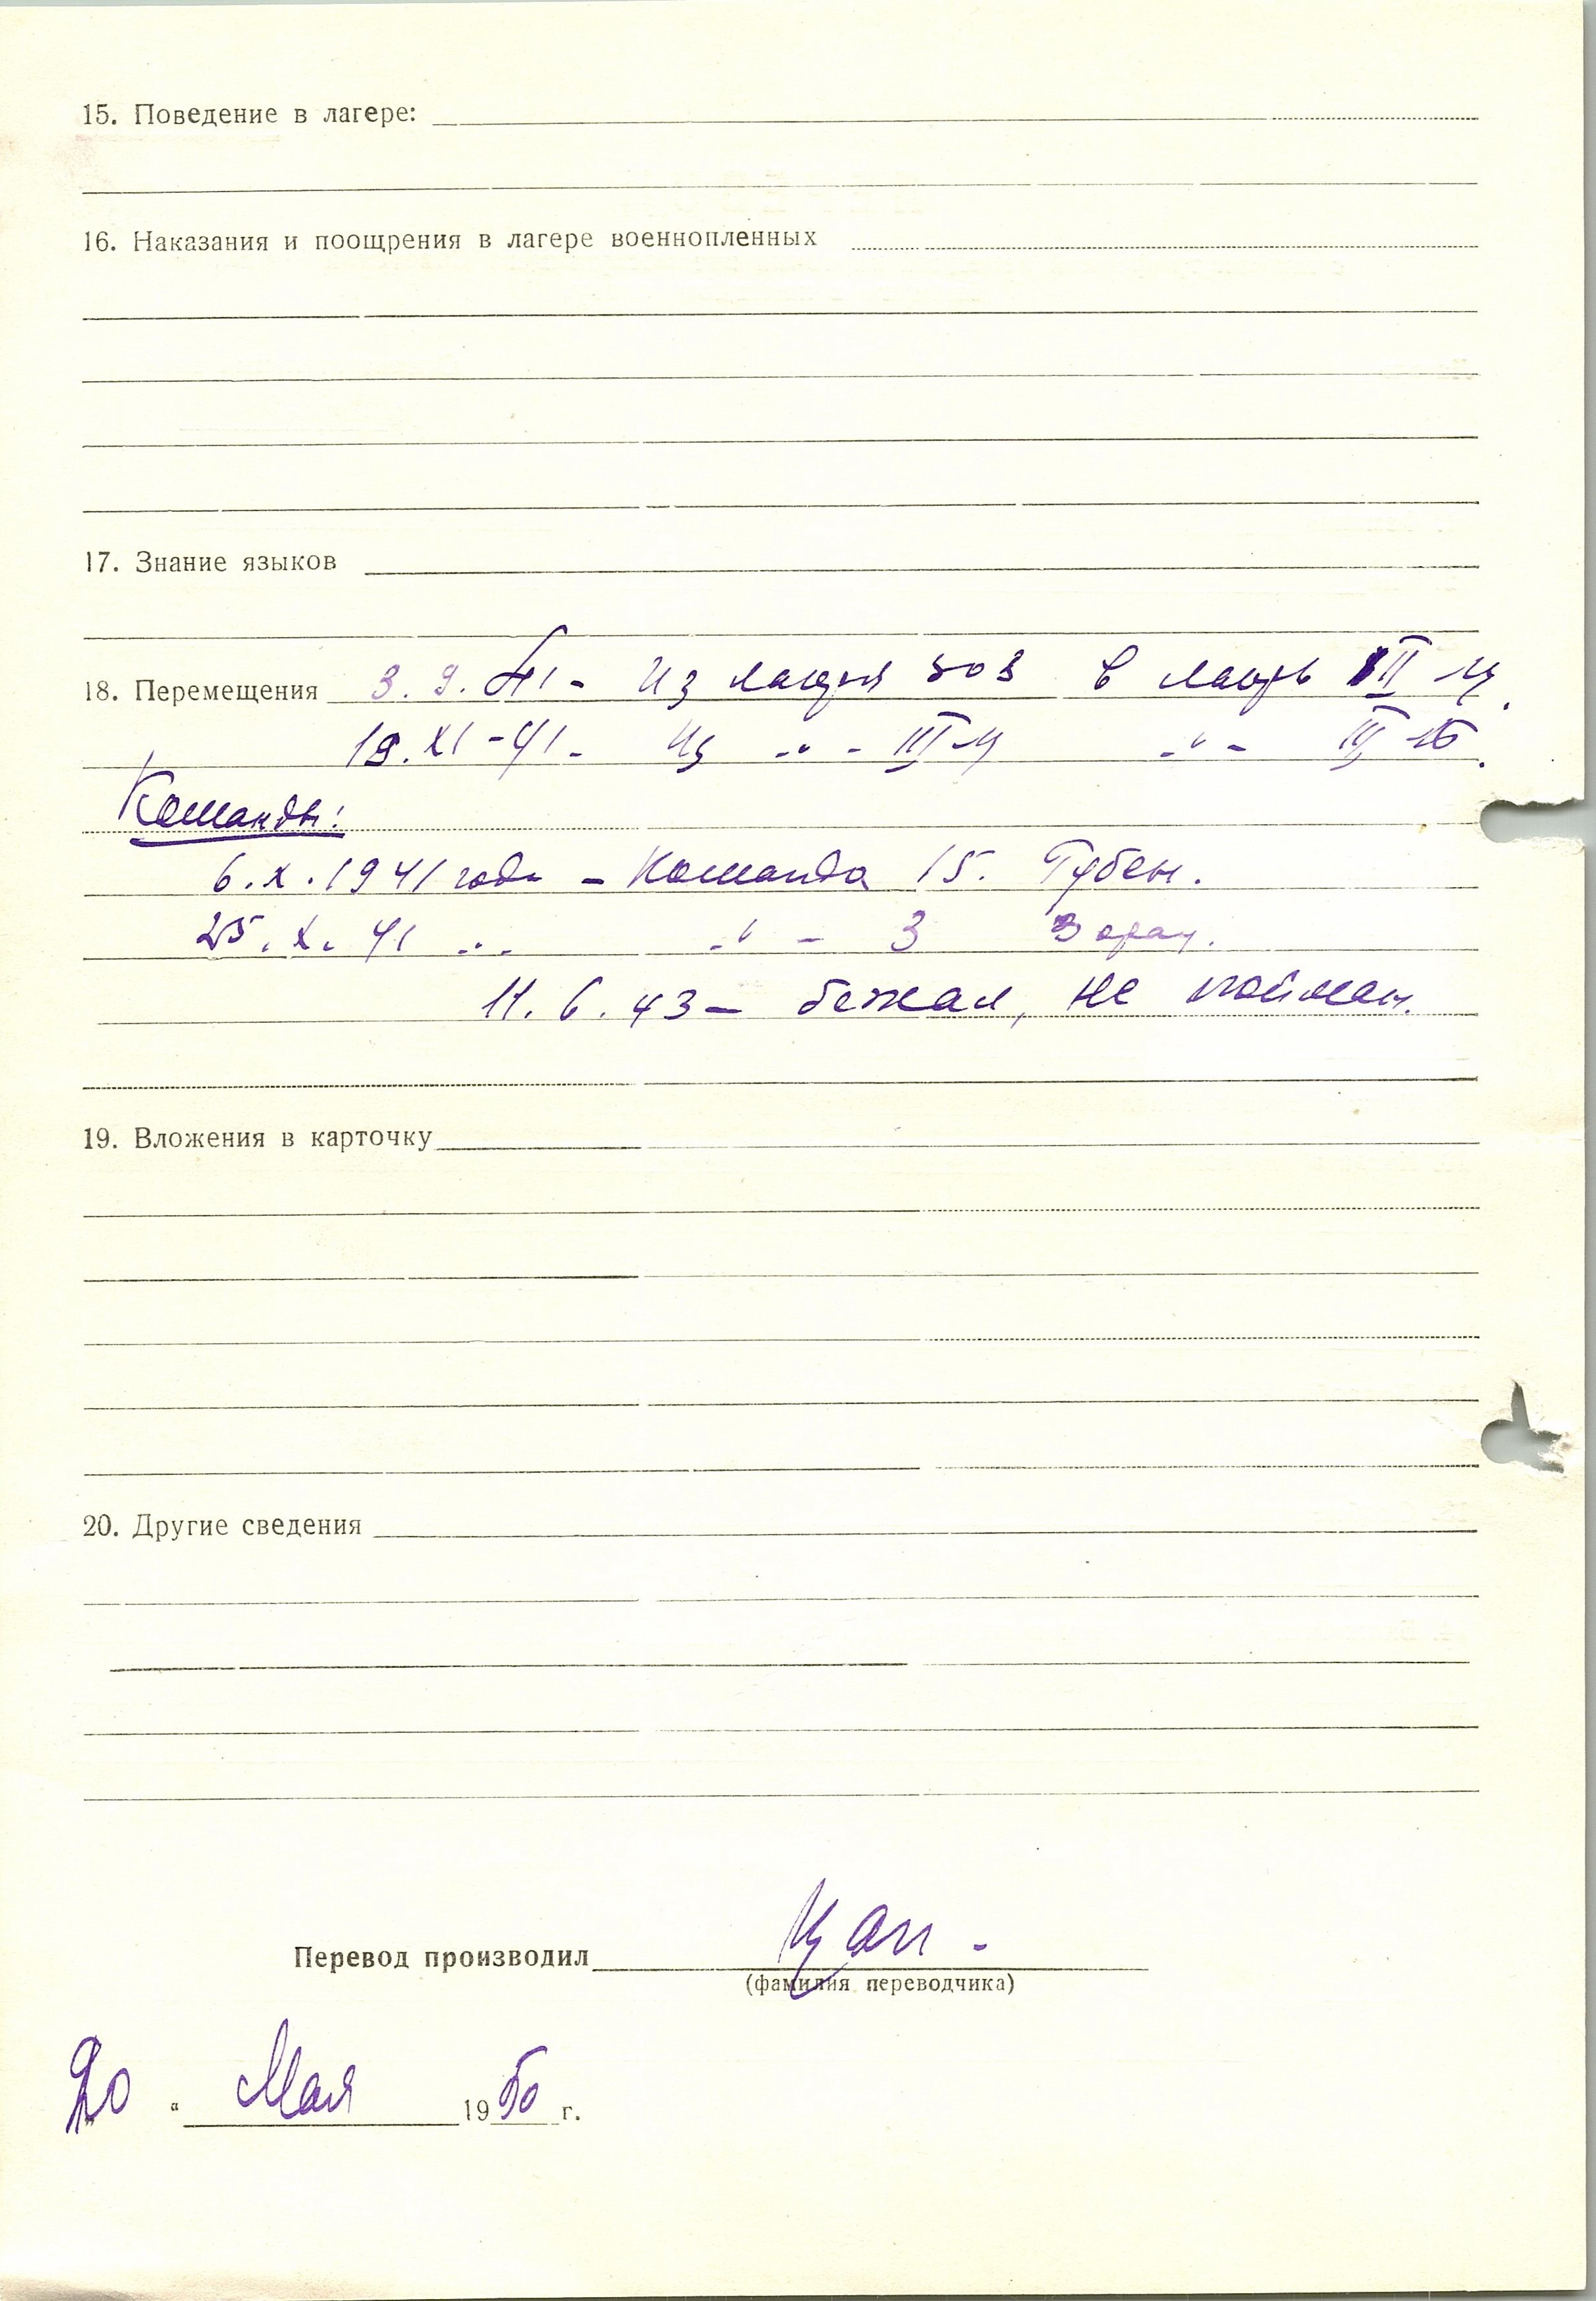 15. Поведение в лагере:
16. Наказания и поощрения в лагере военнопленных
17. Знание языков
18. Перемещения 3. 9. 41 - Из лагеря 303 в лагерь III Ц.
19. XI - 41 - Из -"- III-Ц -"- III-Б.
Команды:
6. X. 1941 года - Команда 15. Губен.
25. X. 41 .. -"- 3 Зорау.
11. 6. 43 - бежал, не пойман.
19. Вложения в карточку
20. Другие сведения
Перевод производил Цап -
(фамилия переводчика)
20 " Мая 1950 г.